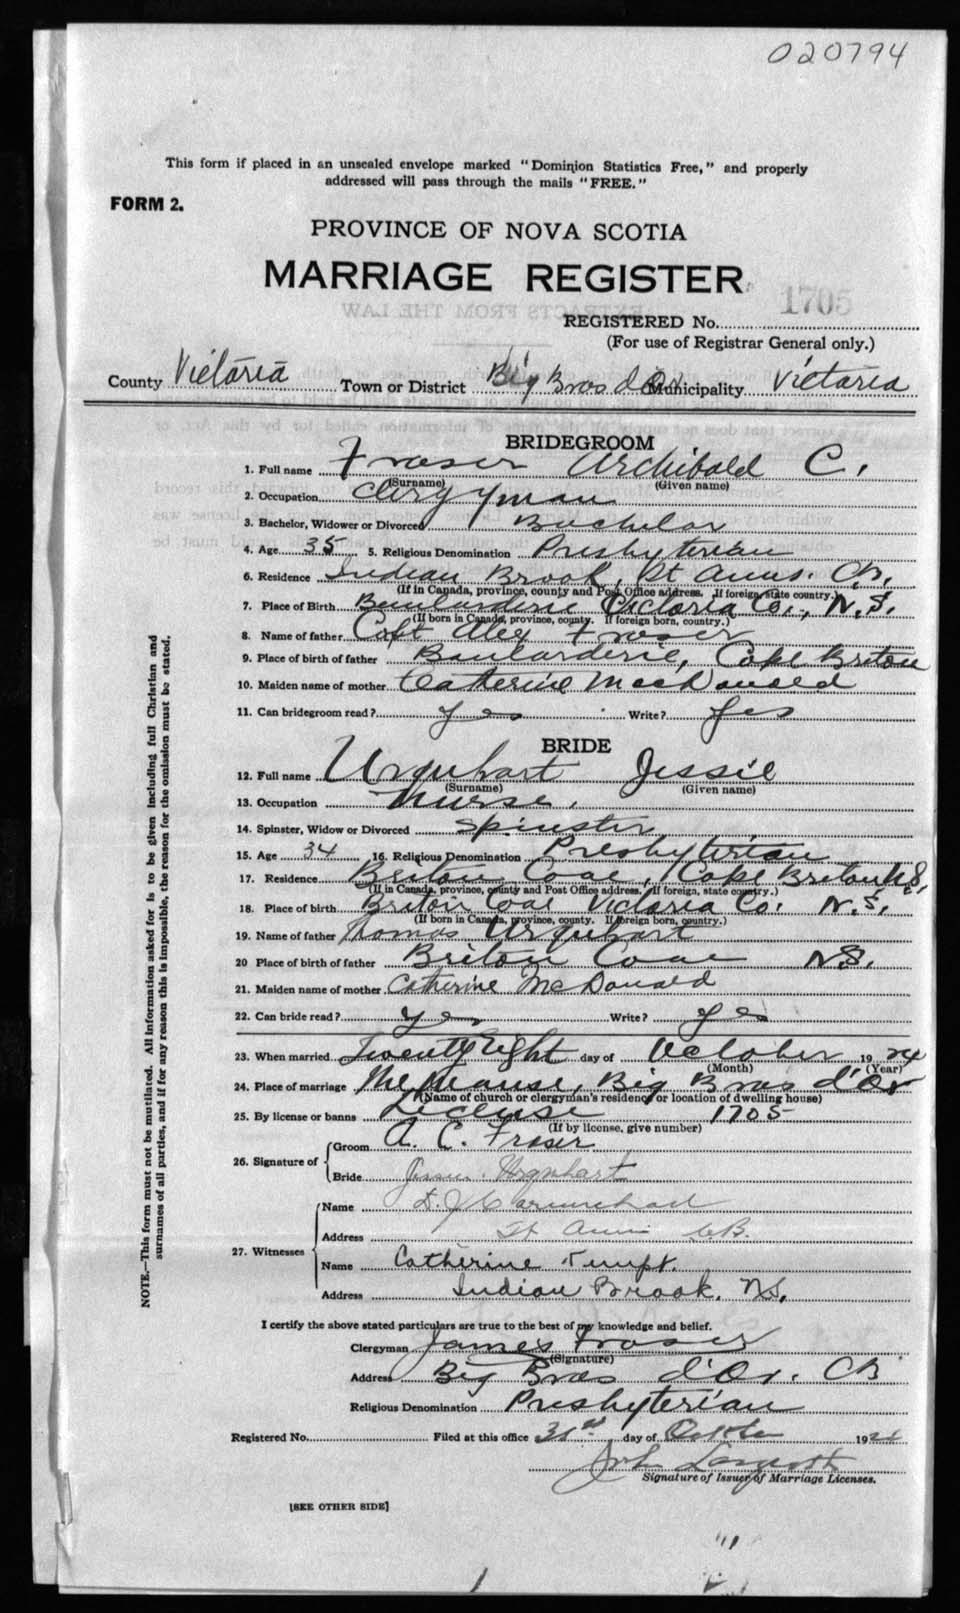 020794
This form if placed in an unsealed envelope marked "Dominion Statistics Free," and properly
addressed will pass through the mails "FREE."
FORM 2.
PROVINCE OF NOVA SCOTIA
MARRIAGE REGISTER
1705
REGISTERED No.
(For use of Registrar General only.)
County Victoria Town or District Big Bras d'Or Municipality Victoria
BRIDEGROOM
1. Full name Fraser Archibald C.
(Surname) (Given name)
2. Occupation Clergyman
3. Bachelor, Widower or Divorced Bachelor
4. Age 35 5. Religious Denomination Presbyterian
6. Residence Indian Brook, St Anns. C.B.
(If in Canada, province, county and Post Office address. If foreign, state country.)
7. Place of Birth Boularderie Victoria Co., N.S.
(If born in Canada, province, county. If foreign born, country.)
8. Name of father Capt Alex Fraser
9. Place of birth of father Boularderie, Cape Breton
10. Maiden name of mother Catherine MacDonald
11. Can bridegroom read? yes Write? yes
BRIDE
12. Full name Urquhart Jessie
(Surname) (Given name)
13. Occupation Nurse.
14. Spinster, Widow or Divorced Spinster
15. Age 34 16. Religious Denomination Presbyterian
17. Residence Briton Cove, Cape Breton N.S.
(If in Canada, province, county and Post Office address. If foreign, state country.)
18. Place of birth Briton Cove Victoria Co. N.S.
(If born in Canada, province, county. If foreign born, country.)
19. Name of father Thomas Urquhart
20 Place of birth of father Briton Cove N.S.
21. Maiden name of mother Catherine McDonald
22. Can bride read? yes Write? yes
23. When married Twenty Eight day of October 1924
(Month) (Year)
24. Place of marriage The Manse, Big Bras d'Or
(Name of church or clergyman's residence or location of dwelling house)
25. By license or banns License 1705
(If by license, give number)
26. Signature of Groom A. C. Fraser
Bride Jessie Urquhart
27. Witnesses
Name D. J. Carmichael
Address St Anns C.B.
Name Catherine
Address Indian Brook, N.S.
I certify the above stated particulars are true to the best of my knowledge and belief.
Clergyman James Fraser
(Signature)
Address Big Bras d'Or. CB
Religious Denomination Presbyterian
Registered No. Filed at this office 31st day of October 1924
John
Signature of Issuer of Marriage Licenses.
[SEE OTHER SIDE]
NOTE.—This form must not be mutilated. All information asked for is to be given including full Christian and
surnames of all parties, and if for any reason this is impossible, the reason for the omission must be stated.